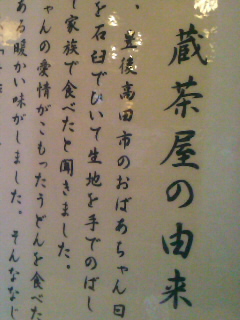 蔵茶屋の由来
豊後高田市のおばあちゃん曰
を石臼でひいて生地を手でのばし
家族で食べたと聞きました。
ゃんの愛情がこもったうどんを食べた
ある暖かい味がしました。そんななじ